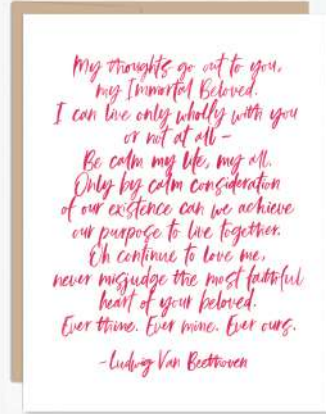 My thoughts go out to you,
my Immortal Beloved.
I can live only wholly with you
or not at all –
Be calm my life, my all.
Only by calm consideration
of our existence can we achieve
our purpose to live together.
Oh continue to love me,
never misjudge the most faithful
heart of your beloved.
Ever thine. Ever mine. Ever ours.
-Ludwig Van Beethoven